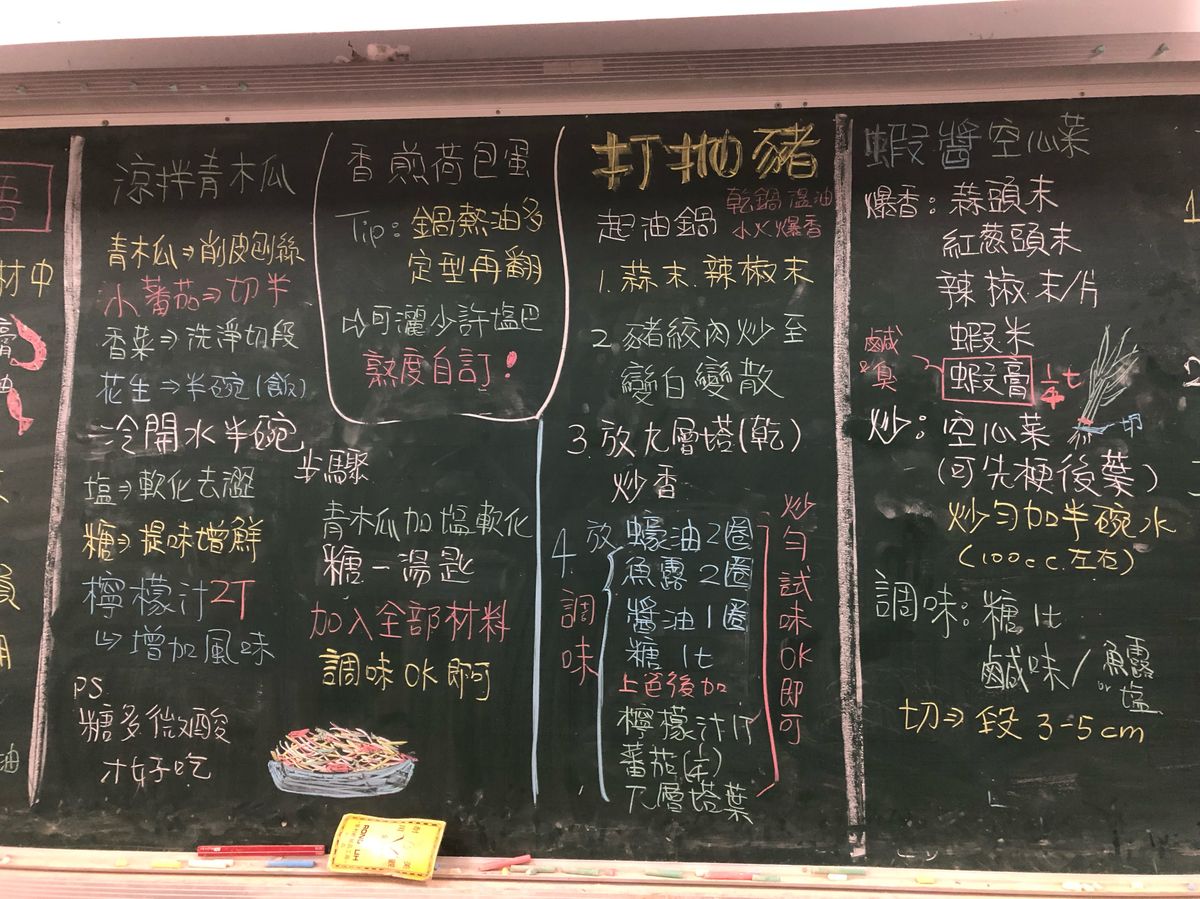 語
材中
膏
油
涼拌青木瓜
青木瓜⇒削皮刨絲
小蕃茄⇒切半
香菜⇒洗淨切段
花生⇒半碗(飯)
冷開水半碗
塩⇒軟化去澀
糖⇒提味增鮮
檸檬汁2T
↳增加風味
PS
糖多微酸
才好吃
香煎荷包蛋
Tip: 鍋熱油多
定型再翻
⇨可灑少許塩巴
熟度自訂!
步驟
青木瓜加塩軟化
糖一湯匙
加入全部材料
調味OK即可
打拋豬
起油鍋 乾鍋溫油
小火爆香
1.蒜末.辣椒末
2.豬絞肉炒至
變白變散
3.放九層塔(乾)
炒香
4.放 蠔油2圈
魚露2圈
調味 醬油1圈
糖 1t
上色後加
檸檬汁1T
蕃茄(¼)
九層塔葉
炒勻試味OK即可
蝦醬空心菜
爆香: 蒜頭末
紅蔥頭末
辣椒末/片
蝦米
鹹&臭 蝦膏 ¼t
炒: 空心菜 切
(可先梗後葉)
炒勻加半碗水
(100cc左右)
調味: 糖1t
鹹味/魚露
or塩
切⇒段 3-5cm
RONG LIH